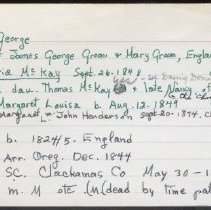 George
James George Green & Mary Green, England
McKay Sept. 26. 1848
dau. Thomas McKay & late Nancy
Margaret Louisa b. Aug. 12. 1849
Margaret m. John Henderson Sept. 20 - 1874.
b. 1824/5. England
Arr. Oreg. Dec. 1844
SC. Clackamas Co May 30 - 1
m. M etc (M. dead by time pat